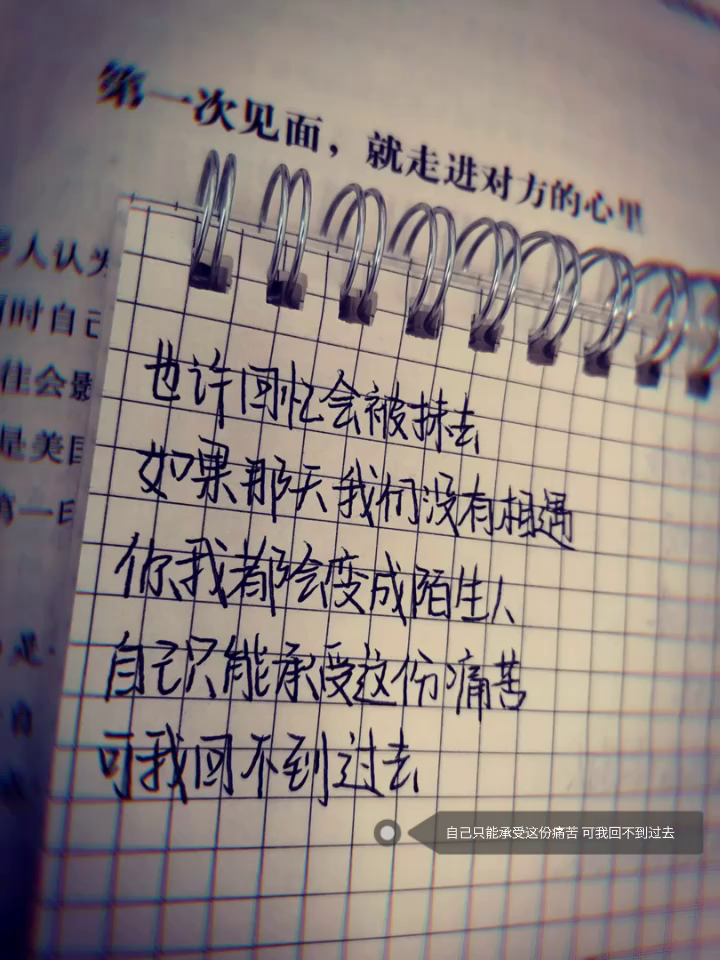 第一次见面，就走进对方的心里
人认为
时自己
往会影
是美国
第一日
是
自
也许回忆会被抹去
如果那天我们没有相遇
你我都会变成陌生人
自己只能承受这份痛苦
可我回不到过去
自己只能承受这份痛苦 可我回不到过去